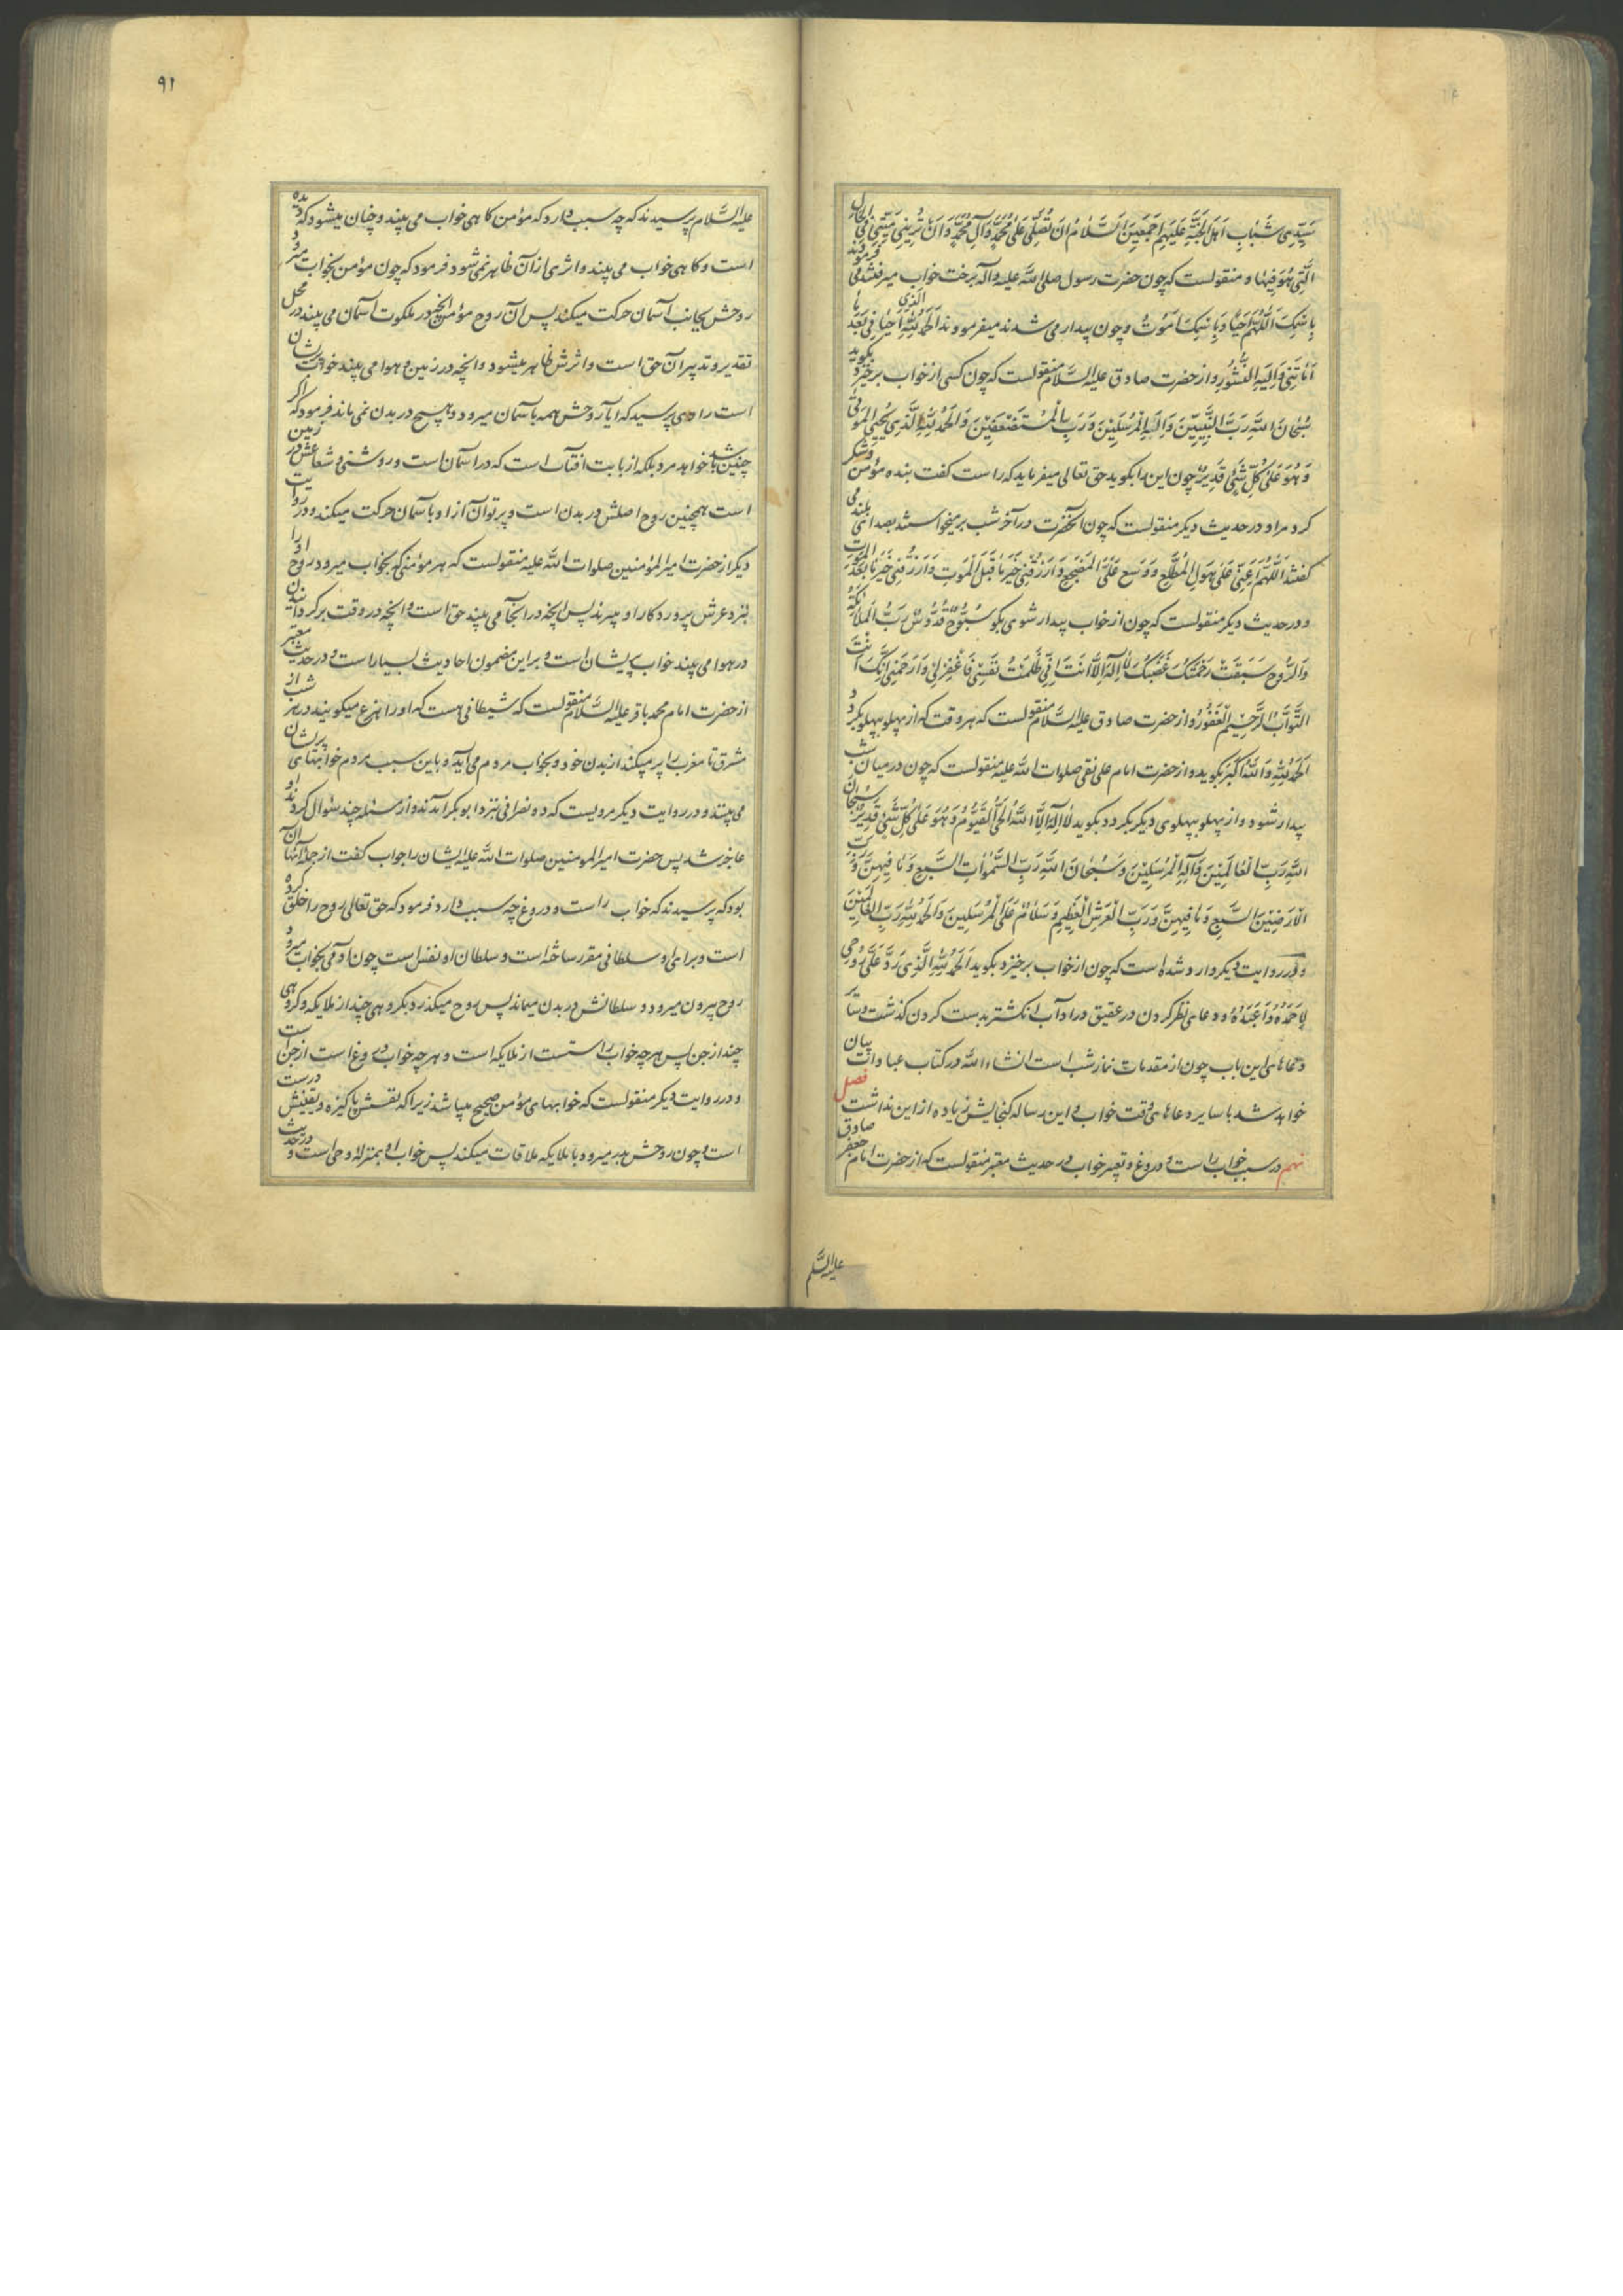 سَيِّدَي شَبَابِ اَهْلِ الْجَنَّةِ عَلَيْهِم اَجْمَعِينَ السَّلَامُ اَنْ تُصَلِّيَ عَلىٰ مُحَمَّدٍ وَآلِ مُحَمَّدٍ وَاَنْ تُرِيَنِي مَيِّتِي فِي الْحَالِ
الَّتِي هُوَ فِيهَا و منقولست که چون حضرت رسول صلی الله علیه و آله برخت خواب میرفتند می فرمودند
بِاسْمِكَ اَللّٰهُمَّ اَحْيَا وَبِاسْمِكَ اَمُوتُ و چون بیدار می شدند میفرمودند اَلْحَمْدُ لِلّٰهِ الَّذِي اَحْيَانِي بَعْدَ مَا
اَمَاتَنِي وَاِلَيْهِ النُّشُورُ و از حضرت صادق علیه السَّلام منقولست که چون کسی از خواب برخیزد بکوید
سُبْحَانَ اللّٰهِ رَبِّ النَّبِيِّينَ وَاِلٰهِ الْمُرْسَلِينَ وَرَبِّ الْمُسْتَضْعَفِينَ وَالْحَمْدُ لِلّٰهِ الَّذِي يُحْيِي الْمَوْتىٰ
وَهُوَ عَلىٰ كُلِّ شَيْءٍ قَدِيرٌ چون این را بکوید حق تعالی میفرماید که راست کفت بنده مؤمن و شکر
کرد مرا و در حدیث دیکر منقولست که چون آنحضرت در آخر شب برمیخواستند بصدای بلند می
کفتند اَللّٰهُمَّ اَعِنِّي عَلىٰ هَوْلِ الْمُطَّلَعِ وَوَسِّعْ عَلَيَّ الْمَضْجَعَ وَارْزُقْنِي خَيْرَ مَا قَبْلَ الْمَوْتِ وَارْزُقْنِي خَيْرَ مَا بَعْدَ الْمَوْتِ
و در حدیث دیکر منقولست که چون از خواب بیدار شوی بکو سُبُّوحٌ قُدُّوسٌ رَبُّ الْمَلَائِكَةِ
وَالرُّوحِ سَبَقَتْ رَحْمَتُكَ غَضَبَكَ لَا اِلٰهَ اِلَّا اَنْتَ اِنِّي ظَلَمْتُ نَفْسِي فَاغْفِرْ لِي وَارْحَمْنِي اِنَّكَ اَنْتَ
التَّوَّابُ الرَّحِيمُ الْغَفُورُ و از حضرت صادق علیه السَّلام منقولست که هر وقت که از پهلو بپهلو بکردد
اَلْحَمْدُ لِلّٰهِ وَاللّٰهُ اَكْبَرُ بکوید و از حضرت امام علی نقی صلوات الله علیه منقولست که چون در میان شب
بیدار شود و از پهلو بپهلوی دیکر بکردد بکوید لَا اِلٰهَ اِلَّا اللّٰهُ الْحَيُّ الْقَيُّومُ وَهُوَ عَلىٰ كُلِّ شَيْءٍ قَدِيرٌ سُبْحَانَ
اللّٰهِ رَبِّ الْعَالَمِينَ وَاِلٰهِ الْمُرْسَلِينَ وَسُبْحَانَ اللّٰهِ رَبِّ السَّمٰوَاتِ السَّبْعِ وَمَا فِيهِنَّ وَرَبِّ
الْاَرَضِينَ السَّبْعِ وَمَا فِيهِنَّ وَرَبِّ الْعَرْشِ الْعَظِيمِ وَسَلَامٌ عَلَى الْمُرْسَلِينَ وَالْحَمْدُ لِلّٰهِ رَبِّ الْعَالَمِينَ
و در روایت دیکر وارد شده است که چون از خواب برخیزد بکوید اَلْحَمْدُ لِلّٰهِ الَّذِي رَدَّ عَلَيَّ رُوحِي
لِاَحْمَدَهُ وَاَعْبُدَهُ و دعای نظر کردن در عقیق در آداب انکشتر بدست کردن کذشت و سایر
دعاهای این باب چون از مقدمات نماز شب است انشاء الله در کتاب عبادات بیان
خواهد شد با سایر دعاهای وقت خواب و این رساله کنجایش زیاده از این نداشت فصل
نهم در سبب خواب راست و دروغ و تعبیر خواب در حدیث معتبر منقولست که از حضرت امام جعفر صادق
علیه السَّلم
۹۱
علیه السَّلام پرسیدند که چه سبب دارد که مؤمن کاهی خواب می بیند و چنان میشود که دیده
است و کاهی خواب می بیند و اثری از آن ظاهر نمی شود فرمود که چون مؤمن بخواب میرود
روحش بجانب آسمان حرکت میکند پس آن روح مؤمن آنچه در ملکوت آسمان می بیند در محل
تقدیر و تدبیر آن حق است و اثرش ظاهر میشود و آنچه در زمین و هوا می بیند خواب پریشان
است راوی پرسید که ایا روحش همه باسمان میرود و هیچ در بدن نمی ماند فرمود که اکر
چنین باشد خواهد مرد بلکه از بابت افتاب است که در آسمان است و روشنی و شعاعش در زمین
است همچنین روح اصلش در بدن است و پرتوآن ازاو باسمان حرکت میکند و در روایت
دیکر از حضرت امیر المؤمنین صلوات الله علیه منقولست که هر مؤمنی که بخواب میرود روح او را
بنزد عرش پروردکار او میبرند پس آنچه در آنجا می بیند حق است و آنچه در وقت برکردانیدن
در هوا می بیند خواب پریشان است و بر این مضمون احادیث بسیار است و در حدیث معتبر
از حضرت امام محمد باقر علیه السَّلام منقولست که شیطانی هست که او را هزع میکویند در هر شب از
مشرق تا مغرب را پر میکند از بدن خود و بخواب مردم می آید و باین سبب مردم خوابهای پریشان
می بینند و در روایت دیکر مرویست که دو نصرانی نزد ابوبکر آمدند و از مسئله چند سؤال کردند و او
عاجز شد پس حضرت امیر المومنین صلوات الله علیه ایشان را جواب کفت از جمله آنها ان
بود که پرسیدند که خواب راست و دروغ چه سبب دارد فرمود که حق تعالی روح را خلق کرده
است و برای او سلطانی مقرر ساخته است و سلطان او نفس است چون آدمی بخواب میرود
روح بیرون میرود و سلطانش در بدن میماند پس روح میکذرد بکروهی چند از ملایکه و کروهی
چند از جن پس هر چه خواب راستست از ملایکه است و هر چه خواب دروغ است از جن است
و در روایت دیکر منقولست که خوابهای مؤمن صحیح میباشد زیرا که نفسش پاکیزه و یقینش درست
است و چون روحش بدر میرود با ملایکه ملاقات میکند پس خواب او بمنزله وحی است و در حدیث